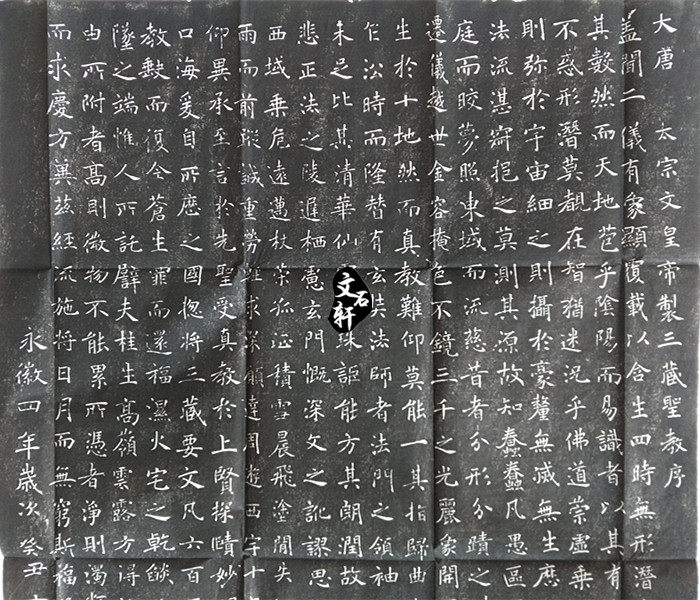 大唐 太宗文皇帝製三藏聖教序
盖聞二儀有象顯覆載以含生四時無形潛
其數然而天地苞乎陰陽而易識者以其有
不惑形潛莫覩在智猶迷況乎佛道崇虛乘
則弥於宇宙細之則攝於豪釐無滅無生歷
法流湛寂挹之莫測其源故知蠢蠢凡愚區
庭而皎夢照東域而流慈昔者分形分蹟之
遷儀越世金容掩色不鏡三千之光麗象開
生於十地然而真教難仰莫能一其指歸曲
乍沿時而隆替有玄奘法師者法門之領袖
未足比其清華仙珠詎能方其朗潤故
悲正法之陵遲栖慮玄門慨深文之訛謬思
西域乘危遠邁杖策孤征積雪晨飛塗間失
雨而前蹤誠重勞輕求深願達周遊西宇十
仰異承至言於先聖受真教於上賢探賾妙
口海爰自所歷之國惣將三藏要文凡六百
教缺而復全蒼生罪而還福濕火宅之乾燄
墜之端惟人所託譬夫桂生高嶺雲露方得
由所附者高則微物不能累所憑者淨則濁
而求慶方冀茲經流施將日月而無窮斯福
永徽四年歲次癸丑
文石軒